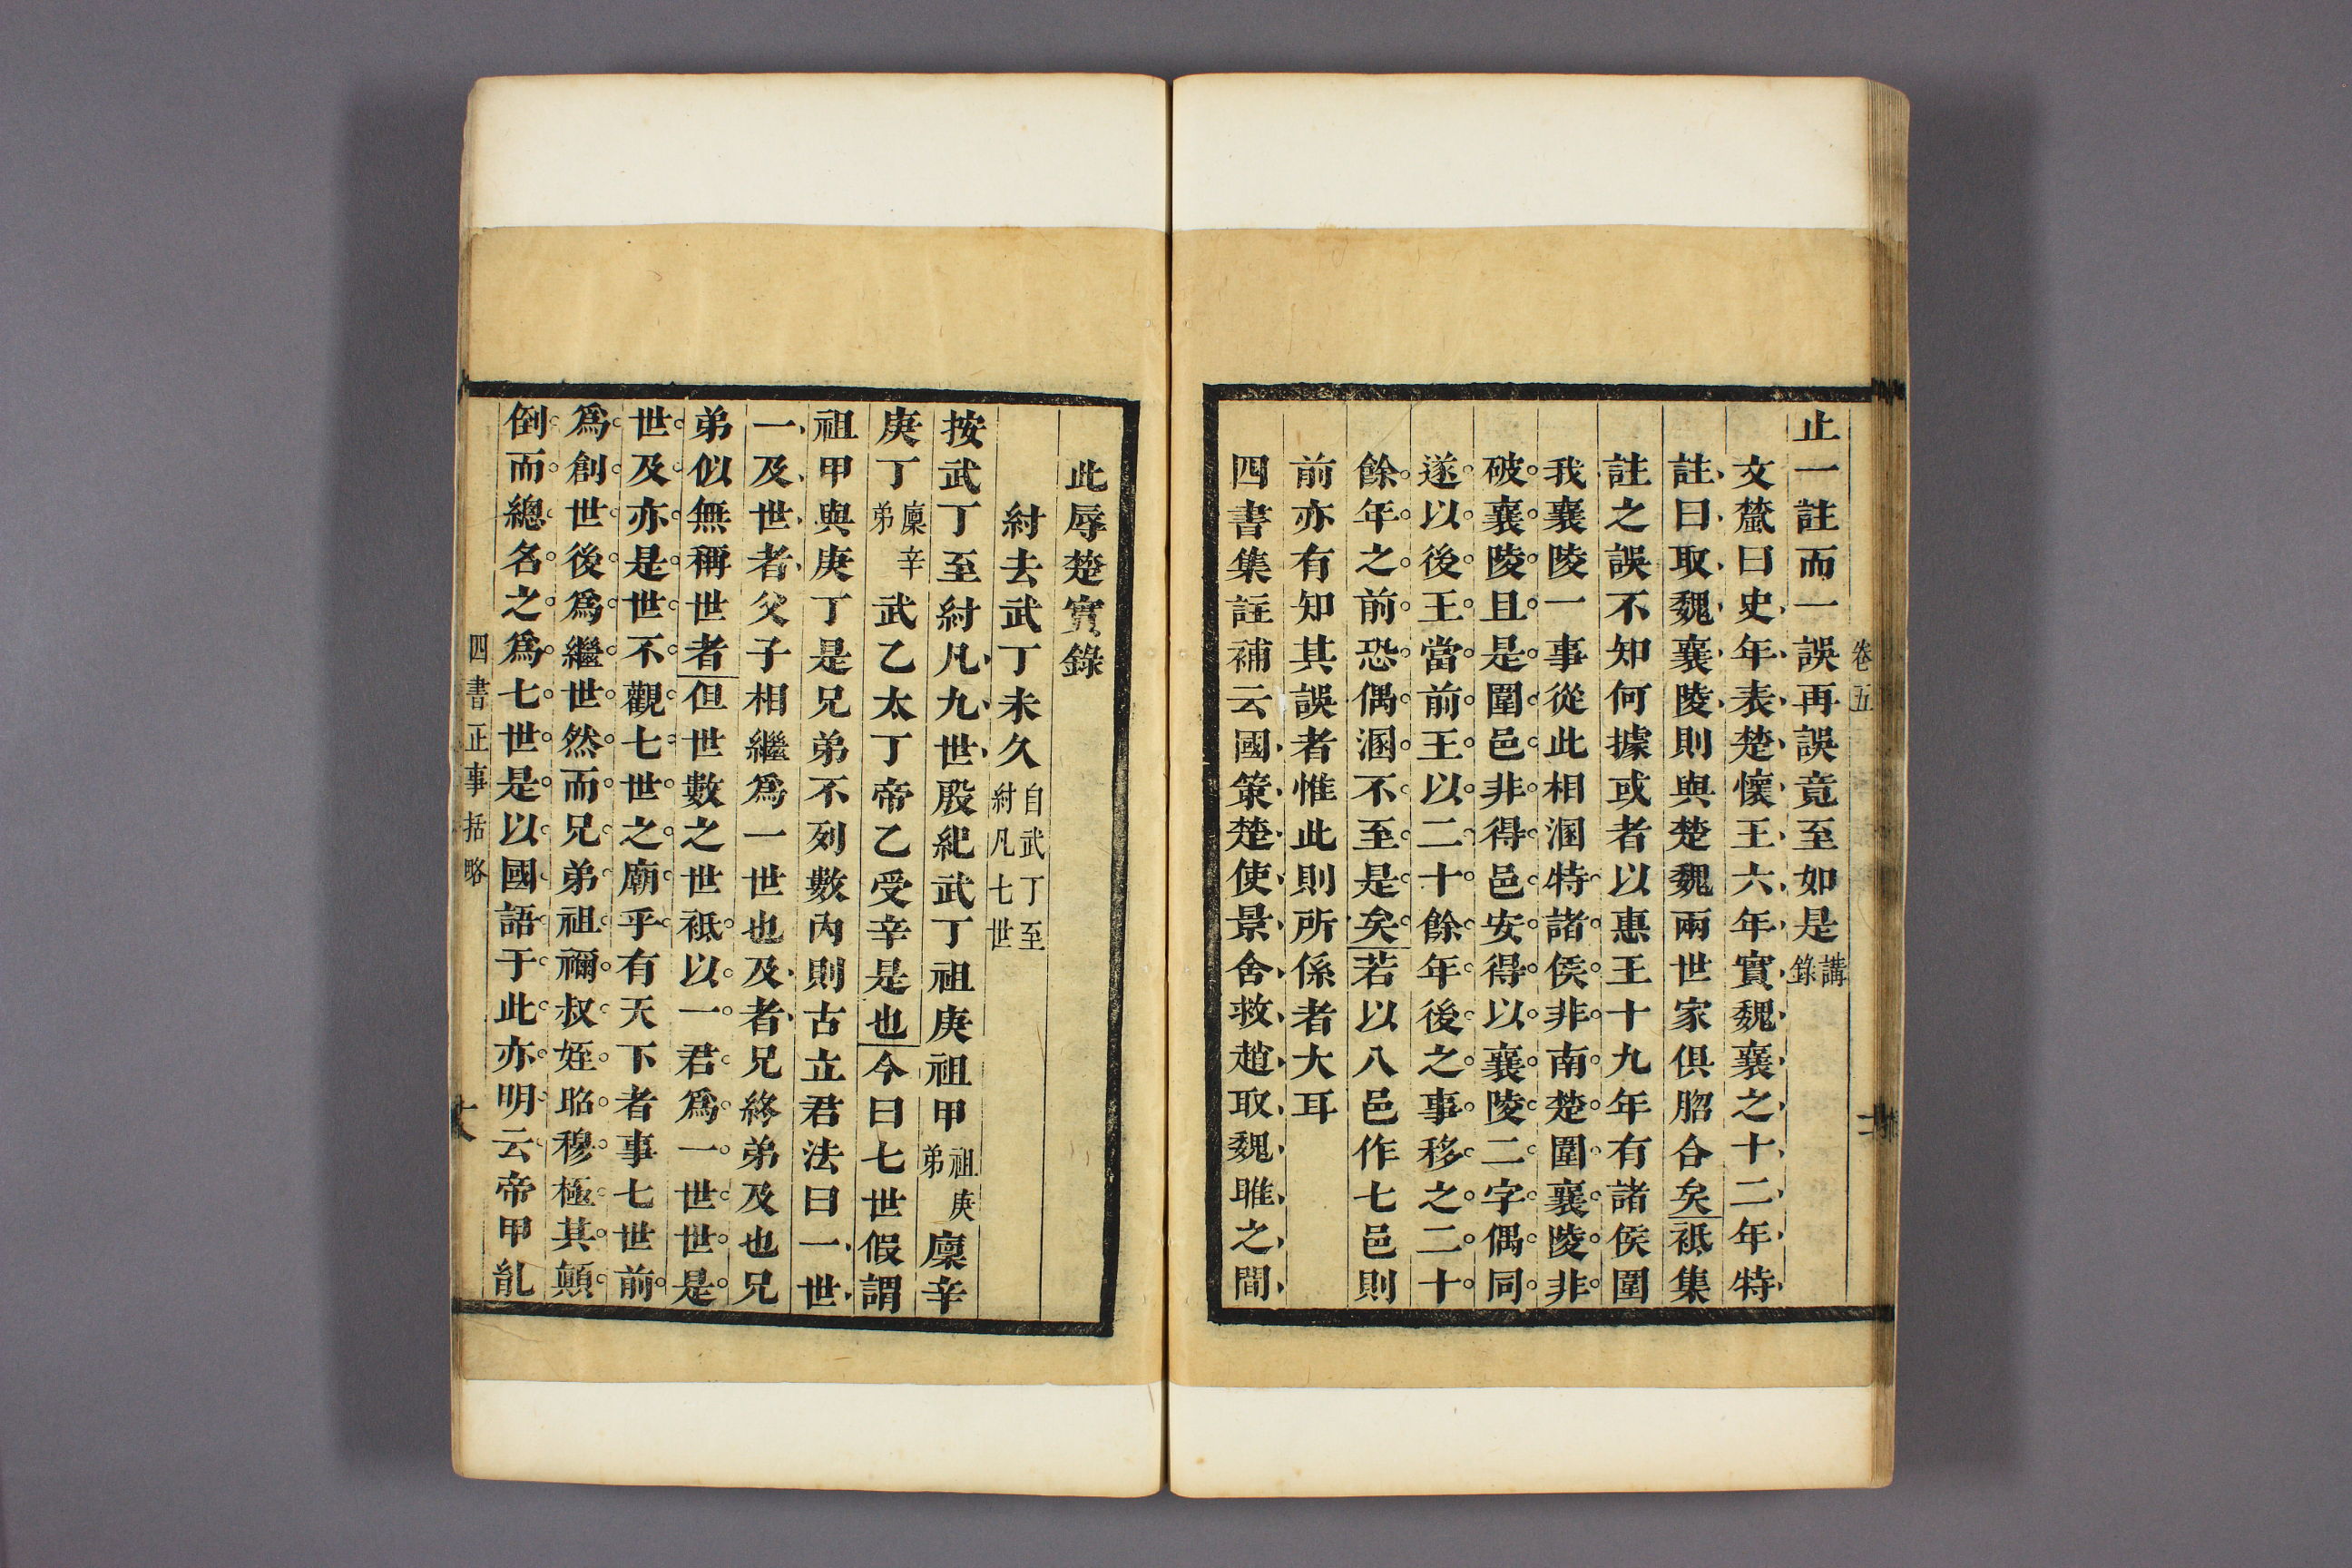 卷五
止一註而一誤再誤竟至如是講錄
文釐曰史年表楚懷王六年實魏襄之十二年特
註曰取魏襄陵則與楚魏兩世家俱脗合矣祇集
註之誤不知何據或者以惠王十九年有諸侯圍
我襄陵一事從此相溷特諸侯非南楚圍襄陵非
破襄陵且是圍邑非得邑安得以襄陵二字偶同
遂以後王當前王以二十餘年後之事移之二十
餘年之前恐偶溷不至是矣若以八邑作七邑則
前亦有知其誤者惟此則所係者大耳
四書集註補云國策楚使景舍救趙取魏睢之間
此辱楚實錄
紂去武丁未久自武丁至紂凡七世
按武丁至紂凡九世殷紀武丁祖庚祖甲祖庚弟廩辛
庚丁廩辛弟武乙太丁帝乙受辛是也今曰七世假謂
祖甲與庚丁是兄弟不列數內則古立君法曰一世
一及世者父子相繼爲一世也及者兄終弟及也兄
弟似無稱世者但世數之世祇以一君爲一世世是
世及亦是世不觀七世之廟乎有天下者事七世前
爲創世後爲繼世然而兄弟祖禰叔姪昭穆極其顛
倒而總名之爲七世是以國語于此亦明云帝甲亂
四書正事括略